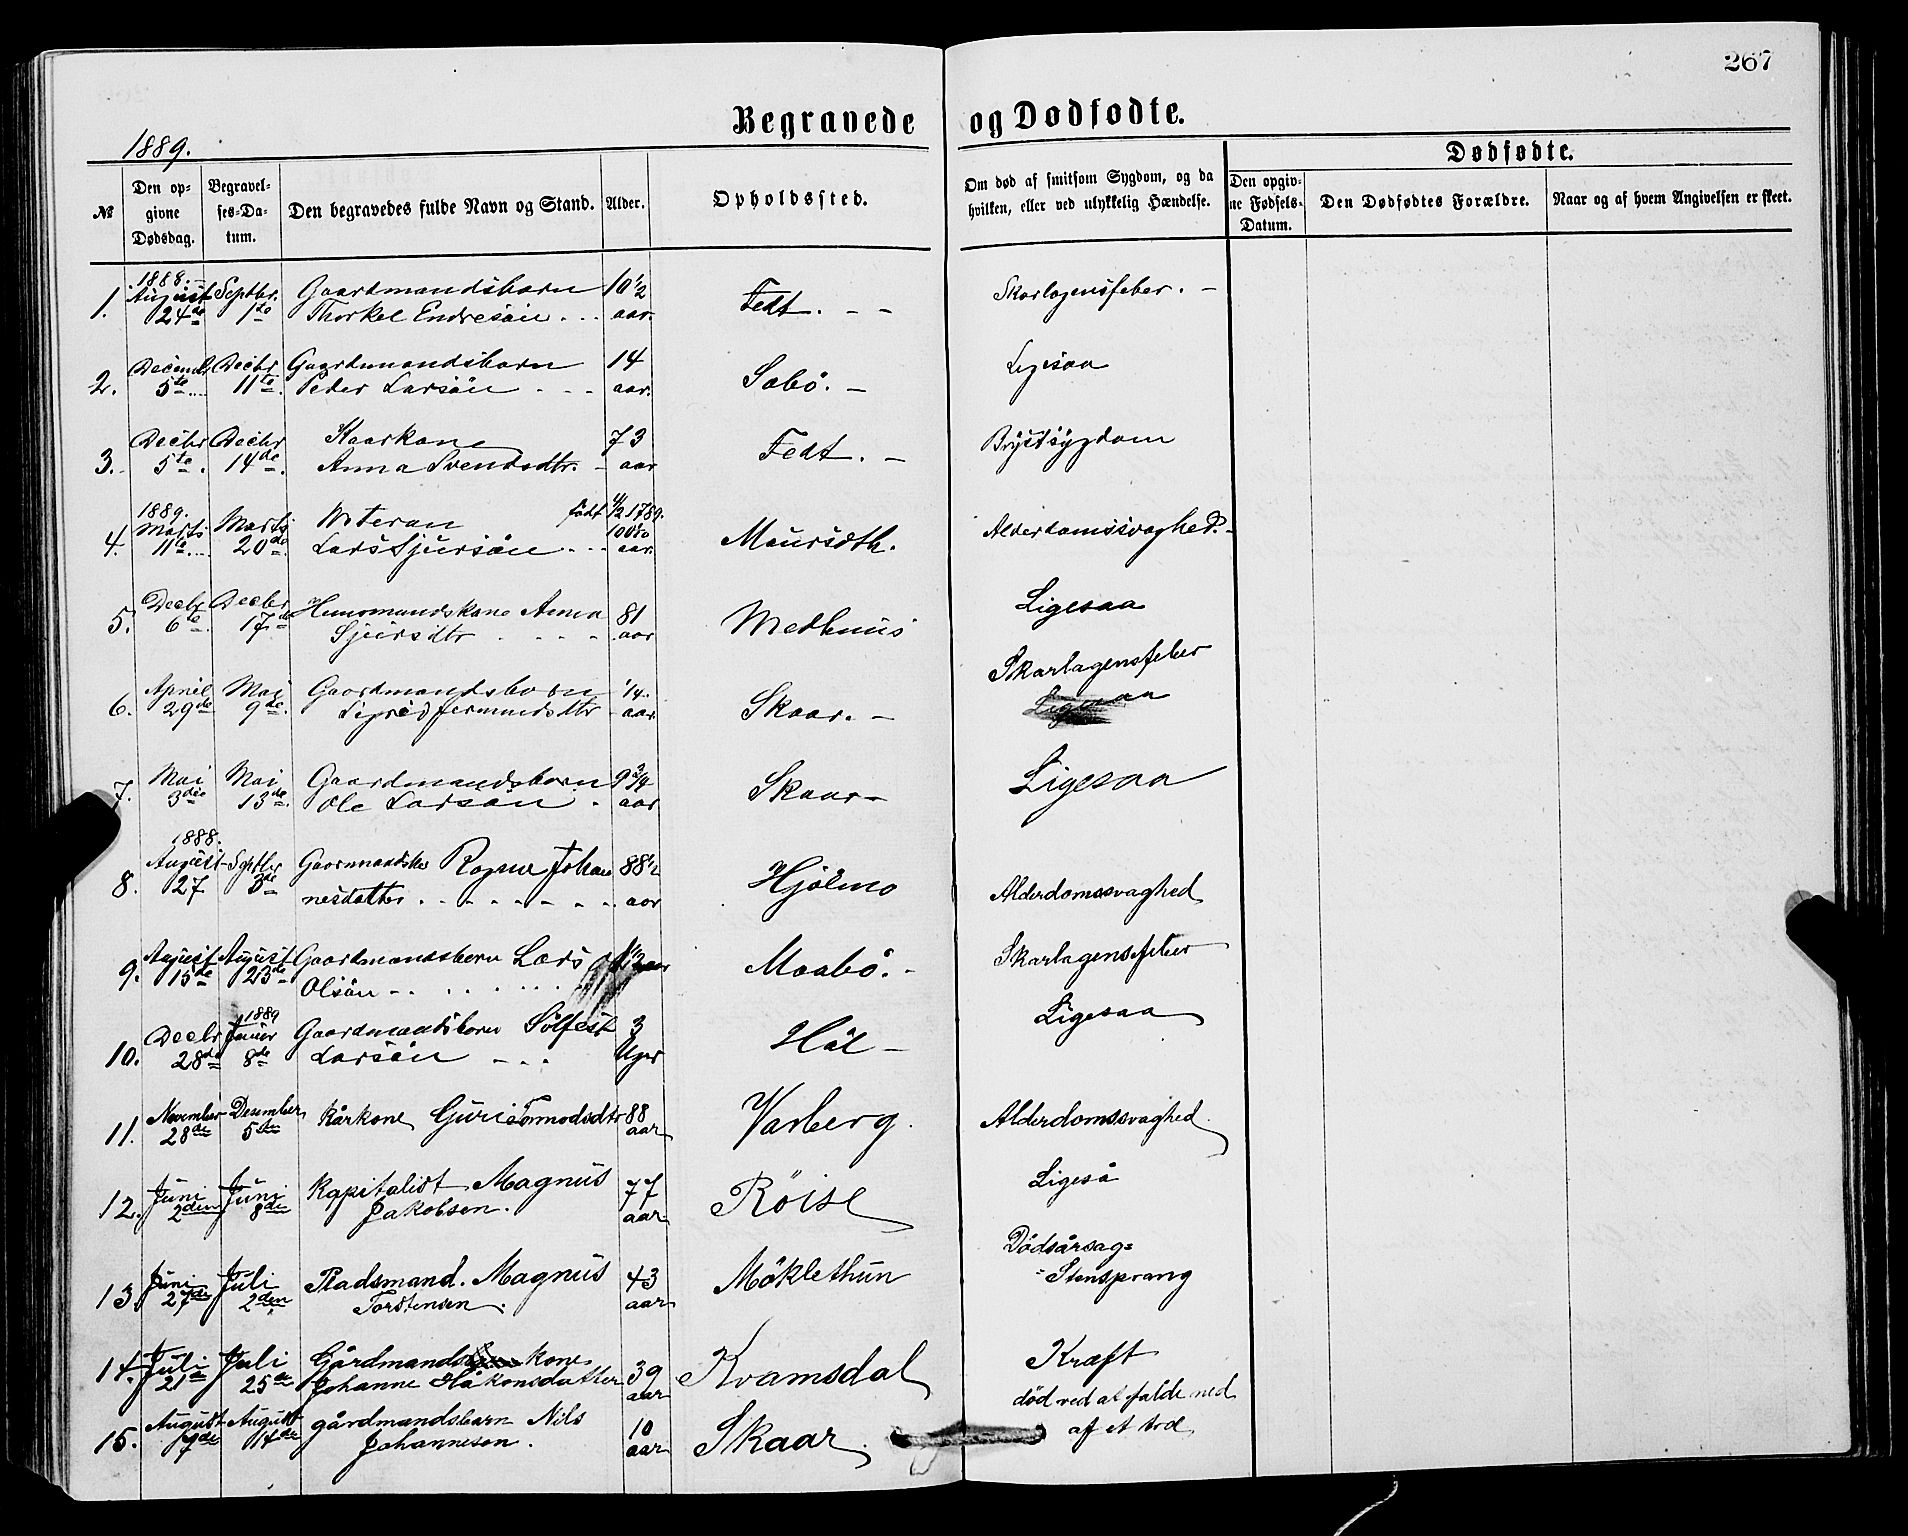 267
Begravede og Dødfødte.
1889.
Dødfødte.
№ Den opgivne Dødsdag. Begravelses-Datum. Den begravedes fulde Navn og Stand. Alder. Opholdssted. Om død af smitsom Sygdom, og da hvilken, eller ved ulykkelig Hændelse. Den opgivne Fødsels-Datum. Den Dødfødtes Forældre. Naar og af hvem Angivelsen er skeet.
1888.
1. August 24de Septbr. 1te Gaardmandsbarn Thorkel Endresøn 10 1/2 aar. Fedt. Skarlagensfeber.
2. Decembr 5te Decbr 11te Gaardmandsbarn Peder Larsøn 14 aar. Sæbö. Ligesaa
3. Decbr 5te Decbr 14de Kaarkone Anna Svendsdtr. 73 aar Fedt. Brystsygdom
1889.
4. Marts 11te Marts 20de Veteran født 4/2 1789. Lars Sjursøn 100 aar. Maursdth. Alderdomssvaghed.
5. Decbr 6te Decbr 17de Huusmandskone Anna Sjursdtr 81 aar Medhuus Ligesaa
6. April 29de Mai 9de Gaardmandsbarn 1/4 aar. Skaar. Skarlagensfeber
7. Mai 3die Mai 13de Gaardmandsbarn Ole Larsøn 9 3/4 aar Skaar Ligesaa
1888.
8. August 27 Septbr 3de Ragna Johannesdatter 88 1/2 aar Hjølmo Alderdomssvaghed
9. August 15de August 23de Gaardmandsbarn Lars Olsøn Maabö. Skarlagensfeber
1889
10. Decbr 28de Januar 8de Gaardmandsbarn Sölfest Larsøn 3 Uger Höl Ligesaa
11. November 28de Desember 5te Kårkone Guri Tormodsdtr 88 aar Varberg. Alderdomssvaghed.
12. Juni 2den Juni 8de Kapitalist Magnus Jakobsen. 77 aar Röise Ligeså
13. Juni 27de Juli 2den Pladsmand. Magnus Torstensen. 43 aar Möklethun Dödsårsag= =Stensprang
14. Juli 21de Juli 25de Gårdmands kone Johanne Håkonsdatter 39 aar Kvamsdal Kræft
15. August August 14de gårdmandsbarn Nils Johannesen. 10 aar Skaar. död ved at falde ned af et træ